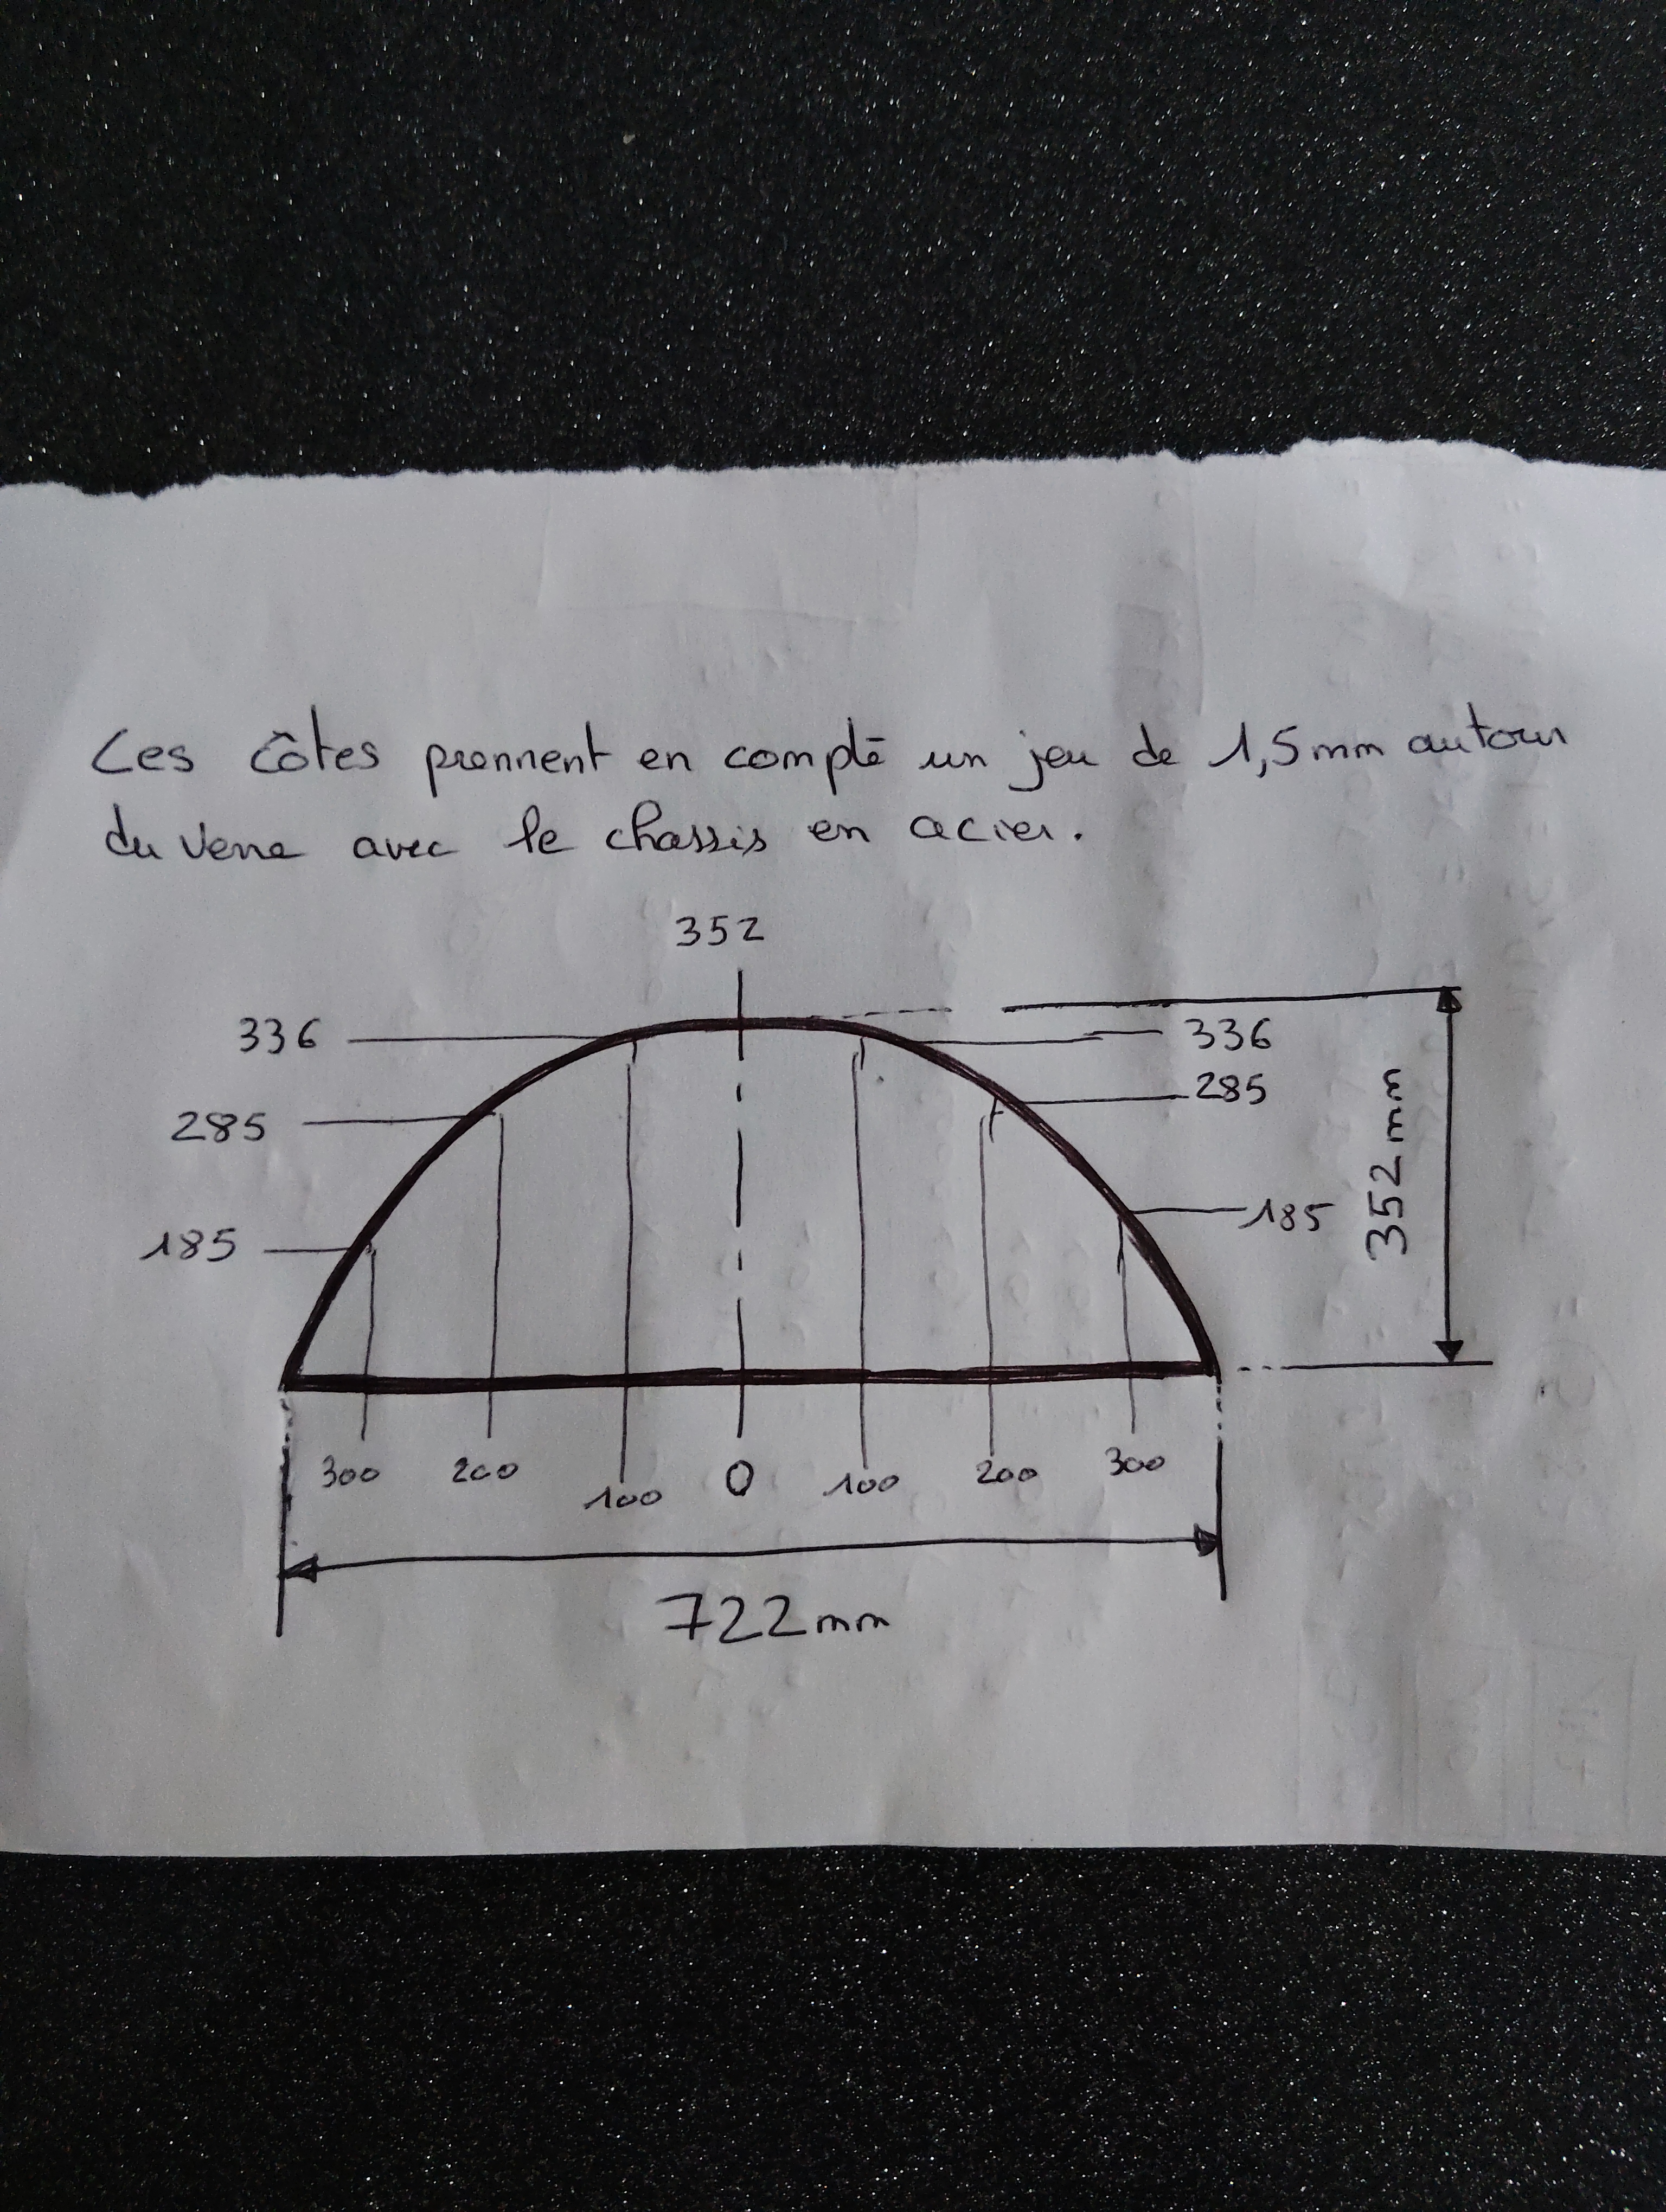 Ces côtes prennent en compte un jeu de 1,5mm autour
du verre avec le chassis en acier.
352
336
336
285
285
185
185
352mm
300 200 100 0 100 200 300
722mm